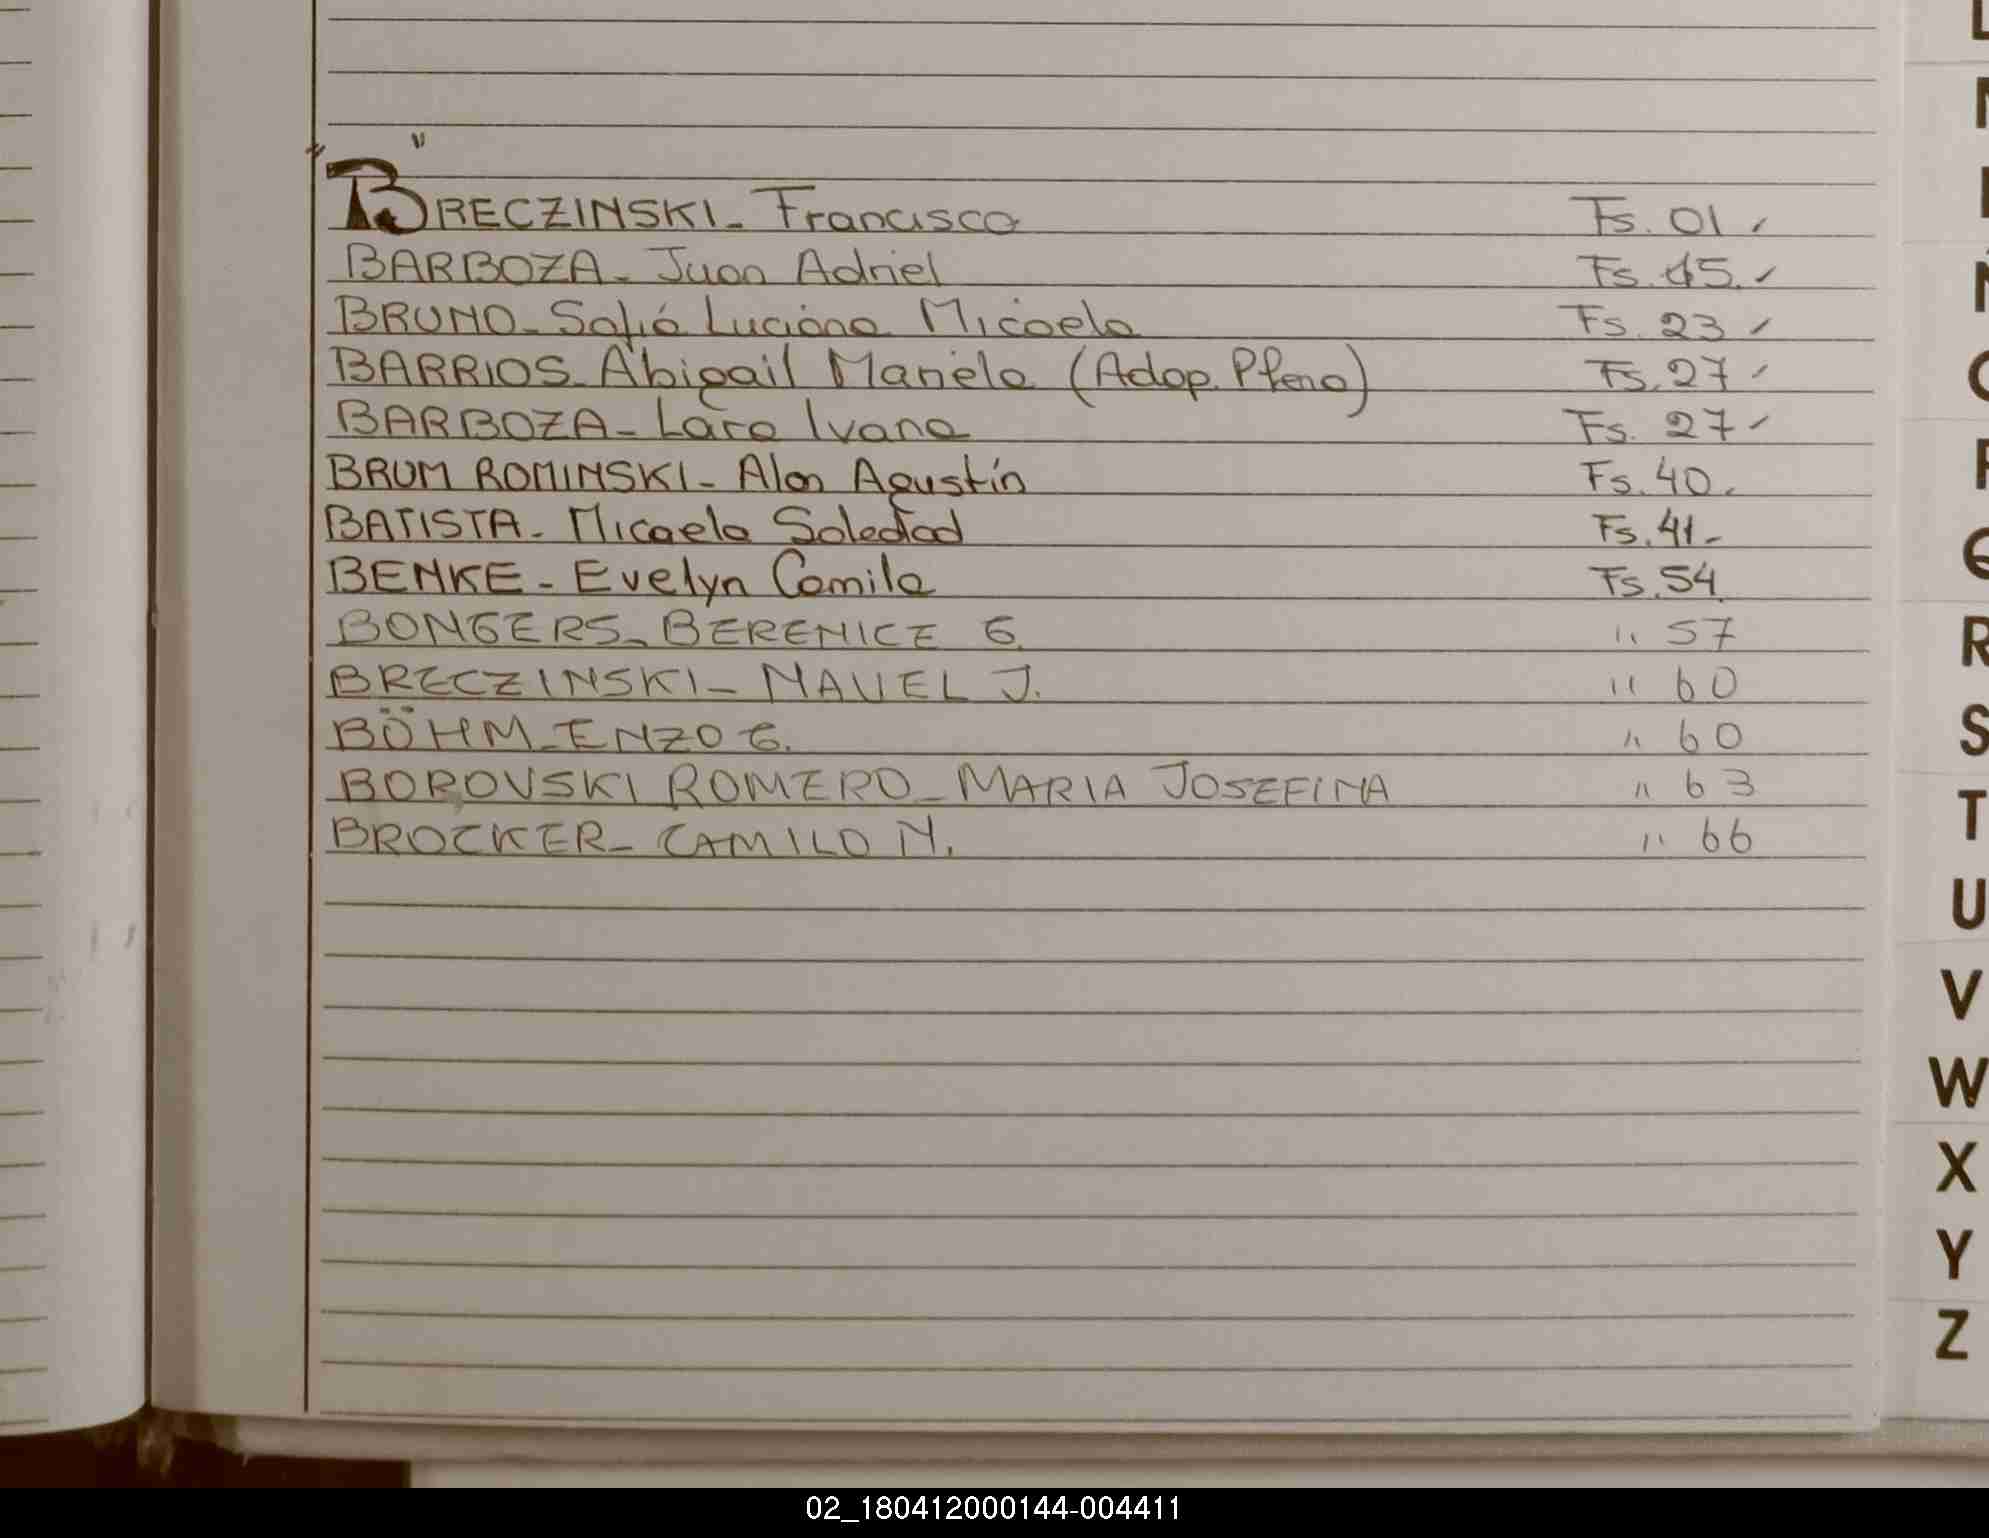 "
BRECZINSKI - Francisco Fs. 01
BARBOZA - Juan Adriel Fs. 15.
BRUNO - Sofía Luciana Micaela Fs. 23
BARRIOS - Abigail Mariela (Adop. Plena) Fs. 27
BARBOZA - Lara Ivana Fs. 27
BRUM ROMINSKI - Alan Agustín Fs. 40.
BATISTA - Micaela Soledad Fs. 41 -
BENKE - Evelyn Camila Fs. 54
BONGERS - BERENICE G. " 57
BRECZINSKI - NAUEL J. " 60
BÖHM - ENZO G. " 60
BOROVSKI ROMERO - MARIA JOSEFINA " 63
BROCKER - CAMILO N. " 66
R
S
T
U
V
W
X
Y
Z
02_180412000144-004411